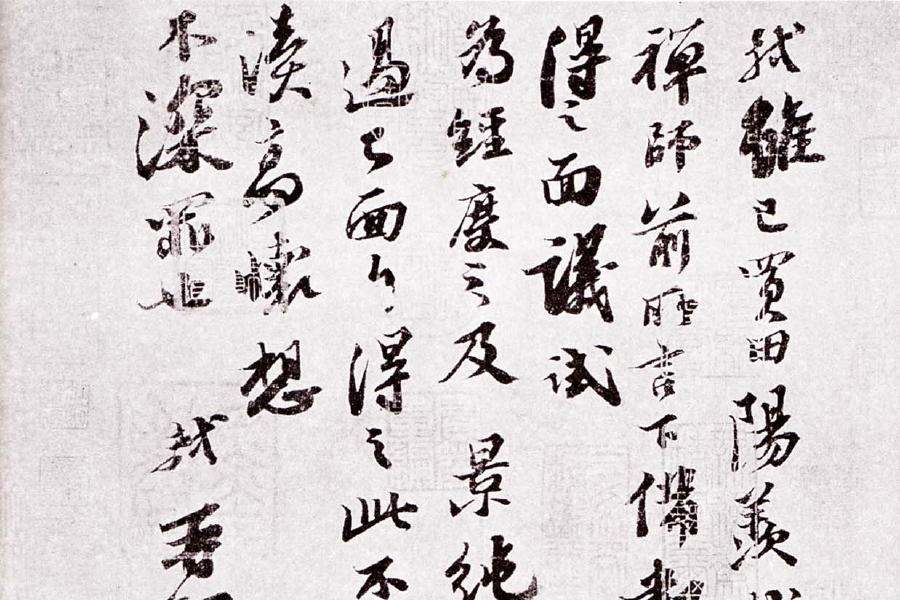 軾雖已買田陽羨
禪師前所言下備
得之面議試
為經度之及景純
過已面白得之此不
瀆高懷想
不深罪也軾再